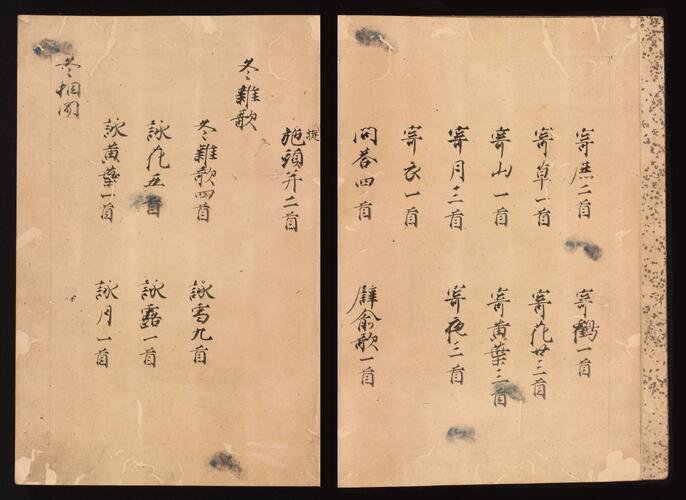 寄鹿二首　寄鶴一首
寄草一首　寄花廿三首
寄山一首　寄黄葉三首
寄月三首　寄夜三首
寄衣一首
問答四首　譬喻歌一首
施頭　二首
冬雜歌
冬雜歌四首　詠雪九首
詠花五首　詠露一首
詠黄葉一首　詠月一首
冬相聞